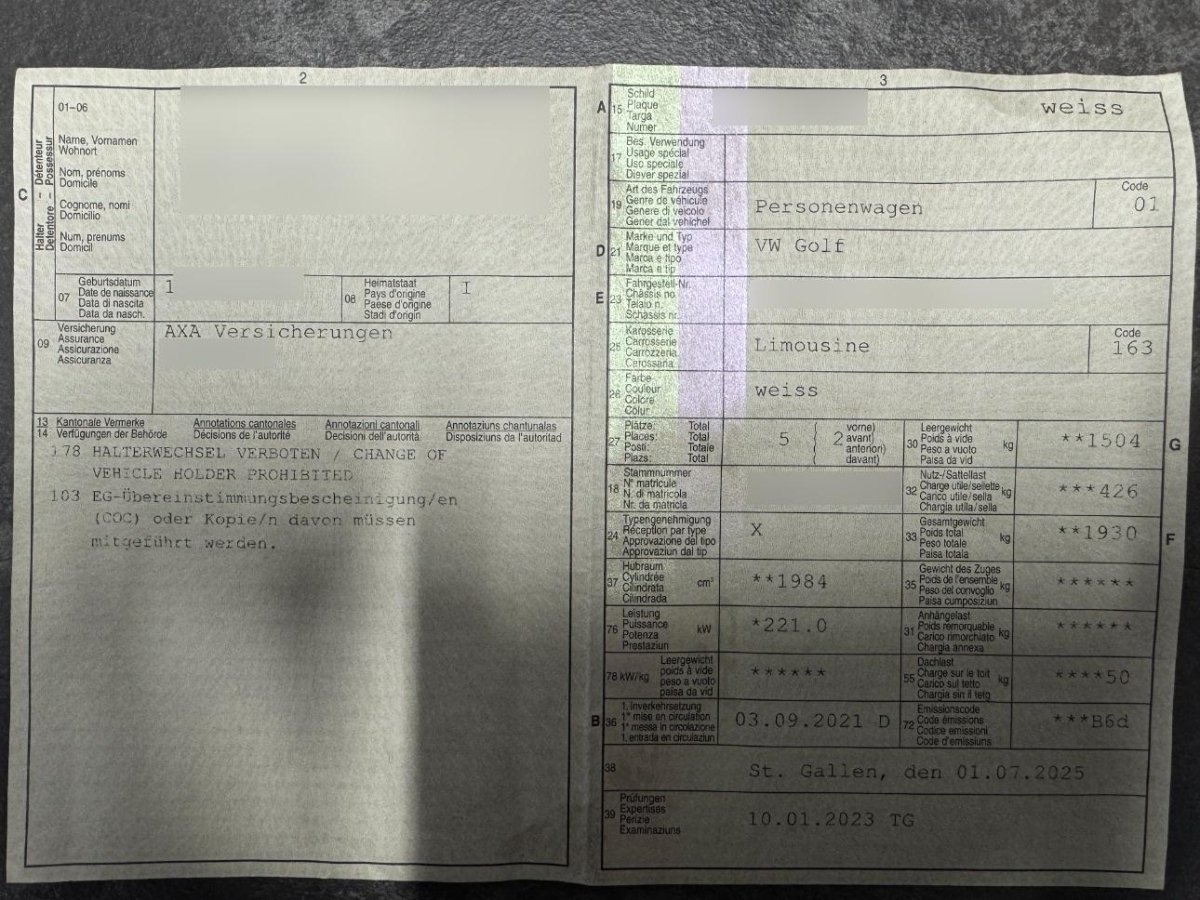 2
01-06
C
Halter – Détenteur
Detentore – Possessur
Name, Vornamen
Wohnort
Nom, prénoms
Domicile
Cognome, nomi
Domicilio
Num, prenums
Domicil
07
Geburtsdatum
Date de naissance
Data di nascita
Data da nasch.
1
08
Heimatstaat
Pays d'origine
Paese d'origine
Stadi d'origin
I
09
Versicherung
Assurance
Assicurazione
Assicuranza
AXA Versicherungen
13 Kantonale Vermerke Annotations cantonales Annotazioni cantonali Annotaziuns chantunalas
14 Verfügungen der Behörde Décisions de l'autorité Decisioni dell'autorità Disposiziuns da l'autoritad
178 HALTERWECHSEL VERBOTEN / CHANGE OF
VEHICLE HOLDER PROHIBITED
103 EG-Übereinstimmungsbescheinigung/en
(COC) oder Kopie/n davon müssen
mitgeführt werden.
3
A
15
Schild
Plaque
Targa
Numer
weiss
17
Bes. Verwendung
Usage spécial
Uso speciale
Diever spezial
19
Art des Fahrzeugs
Genre de véhicule
Genere di veicolo
Gener dal vehichel
Personenwagen
Code
01
D
21
Marke und Typ
Marque et type
Marca e tipo
Marca e tip
VW Golf
E
23
Fahrgestell-Nr.
Châssis no
Telaio n.
Schassis nr.
25
Karosserie
Carrosserie
Carrozzeria
Carossaria
Limousine
Code
163
26
Farbe
Couleur
Colore
Colur
weiss
27
Plätze: Total
Places: Total
Posti: Totale
Plazs: Total
5 ( 2 vorne)
avant)
anteriori)
davant)
30
Leergewicht
Poids à vide
Peso a vuoto
Paisa da vid
kg
**1504
G
18
Stammnummer
N° matricule
N. di matricola
Nr. da matricla
32
Nutz-/Sattellast
Charge utile/sellette
Carico utile/sella
Chargia utila/sella
kg
***426
24
Typengenehmigung
Réception par type
Approvazione del tipo
Approvaziun dal tip
X
33
Gesamtgewicht
Poids total
Peso totale
Paisa totala
kg
**1930
F
37
Hubraum
Cylindrée
Cilindrata
Cilindrada
cm³
**1984
35
Gewicht des Zuges
Poids de l'ensemble
Peso del convoglio
Paisa cumposiziun
kg
******
76
Leistung
Puissance
Potenza
Prestaziun
kW
*221.0
31
Anhängelast
Poids remorquable
Carico rimorchiato
Chargia annexa
kg
******
78 kW/kg
Leergewicht
poids à vide
peso a vuoto
paisa da vid
******
55
Dachlast
Charge sur le toit
Carico sul tetto
Chargia sin il tetg
kg
****50
B
36
1. Inverkehrsetzung
1re mise en circulation
1a messa in circolazione
1. entrada en circulaziun
03.09.2021 D
72
Emissionscode
Code émissions
Codice emissioni
Code d'emissiuns
***B6d
38
St. Gallen, den 01.07.2025
39
Prüfungen
Expertises
Perizie
Examinaziuns
10.01.2023 TG